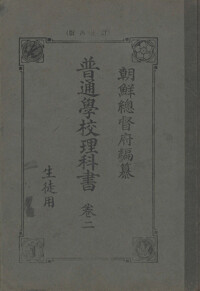 朝鮮總督府編纂
普通學校理科書 卷二
生徒用